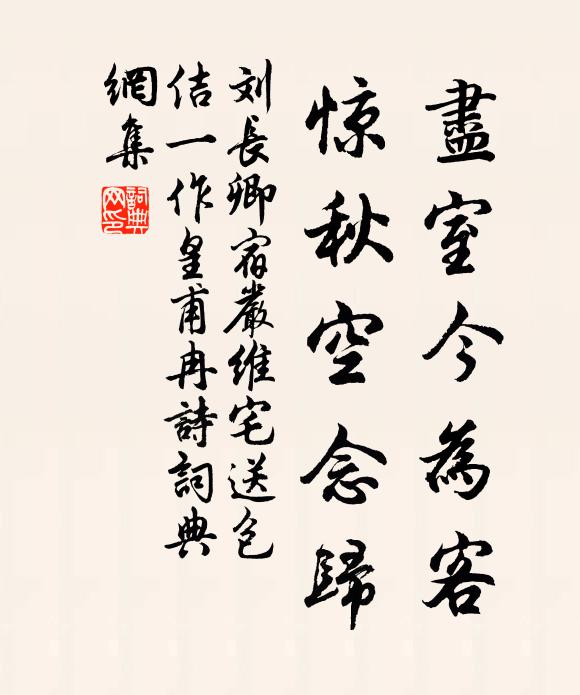 盡室今為客
惊秋空念歸
刘長卿宿嚴維宅送包
佶一作皇甫冉詩詞典
網集
詞典网印